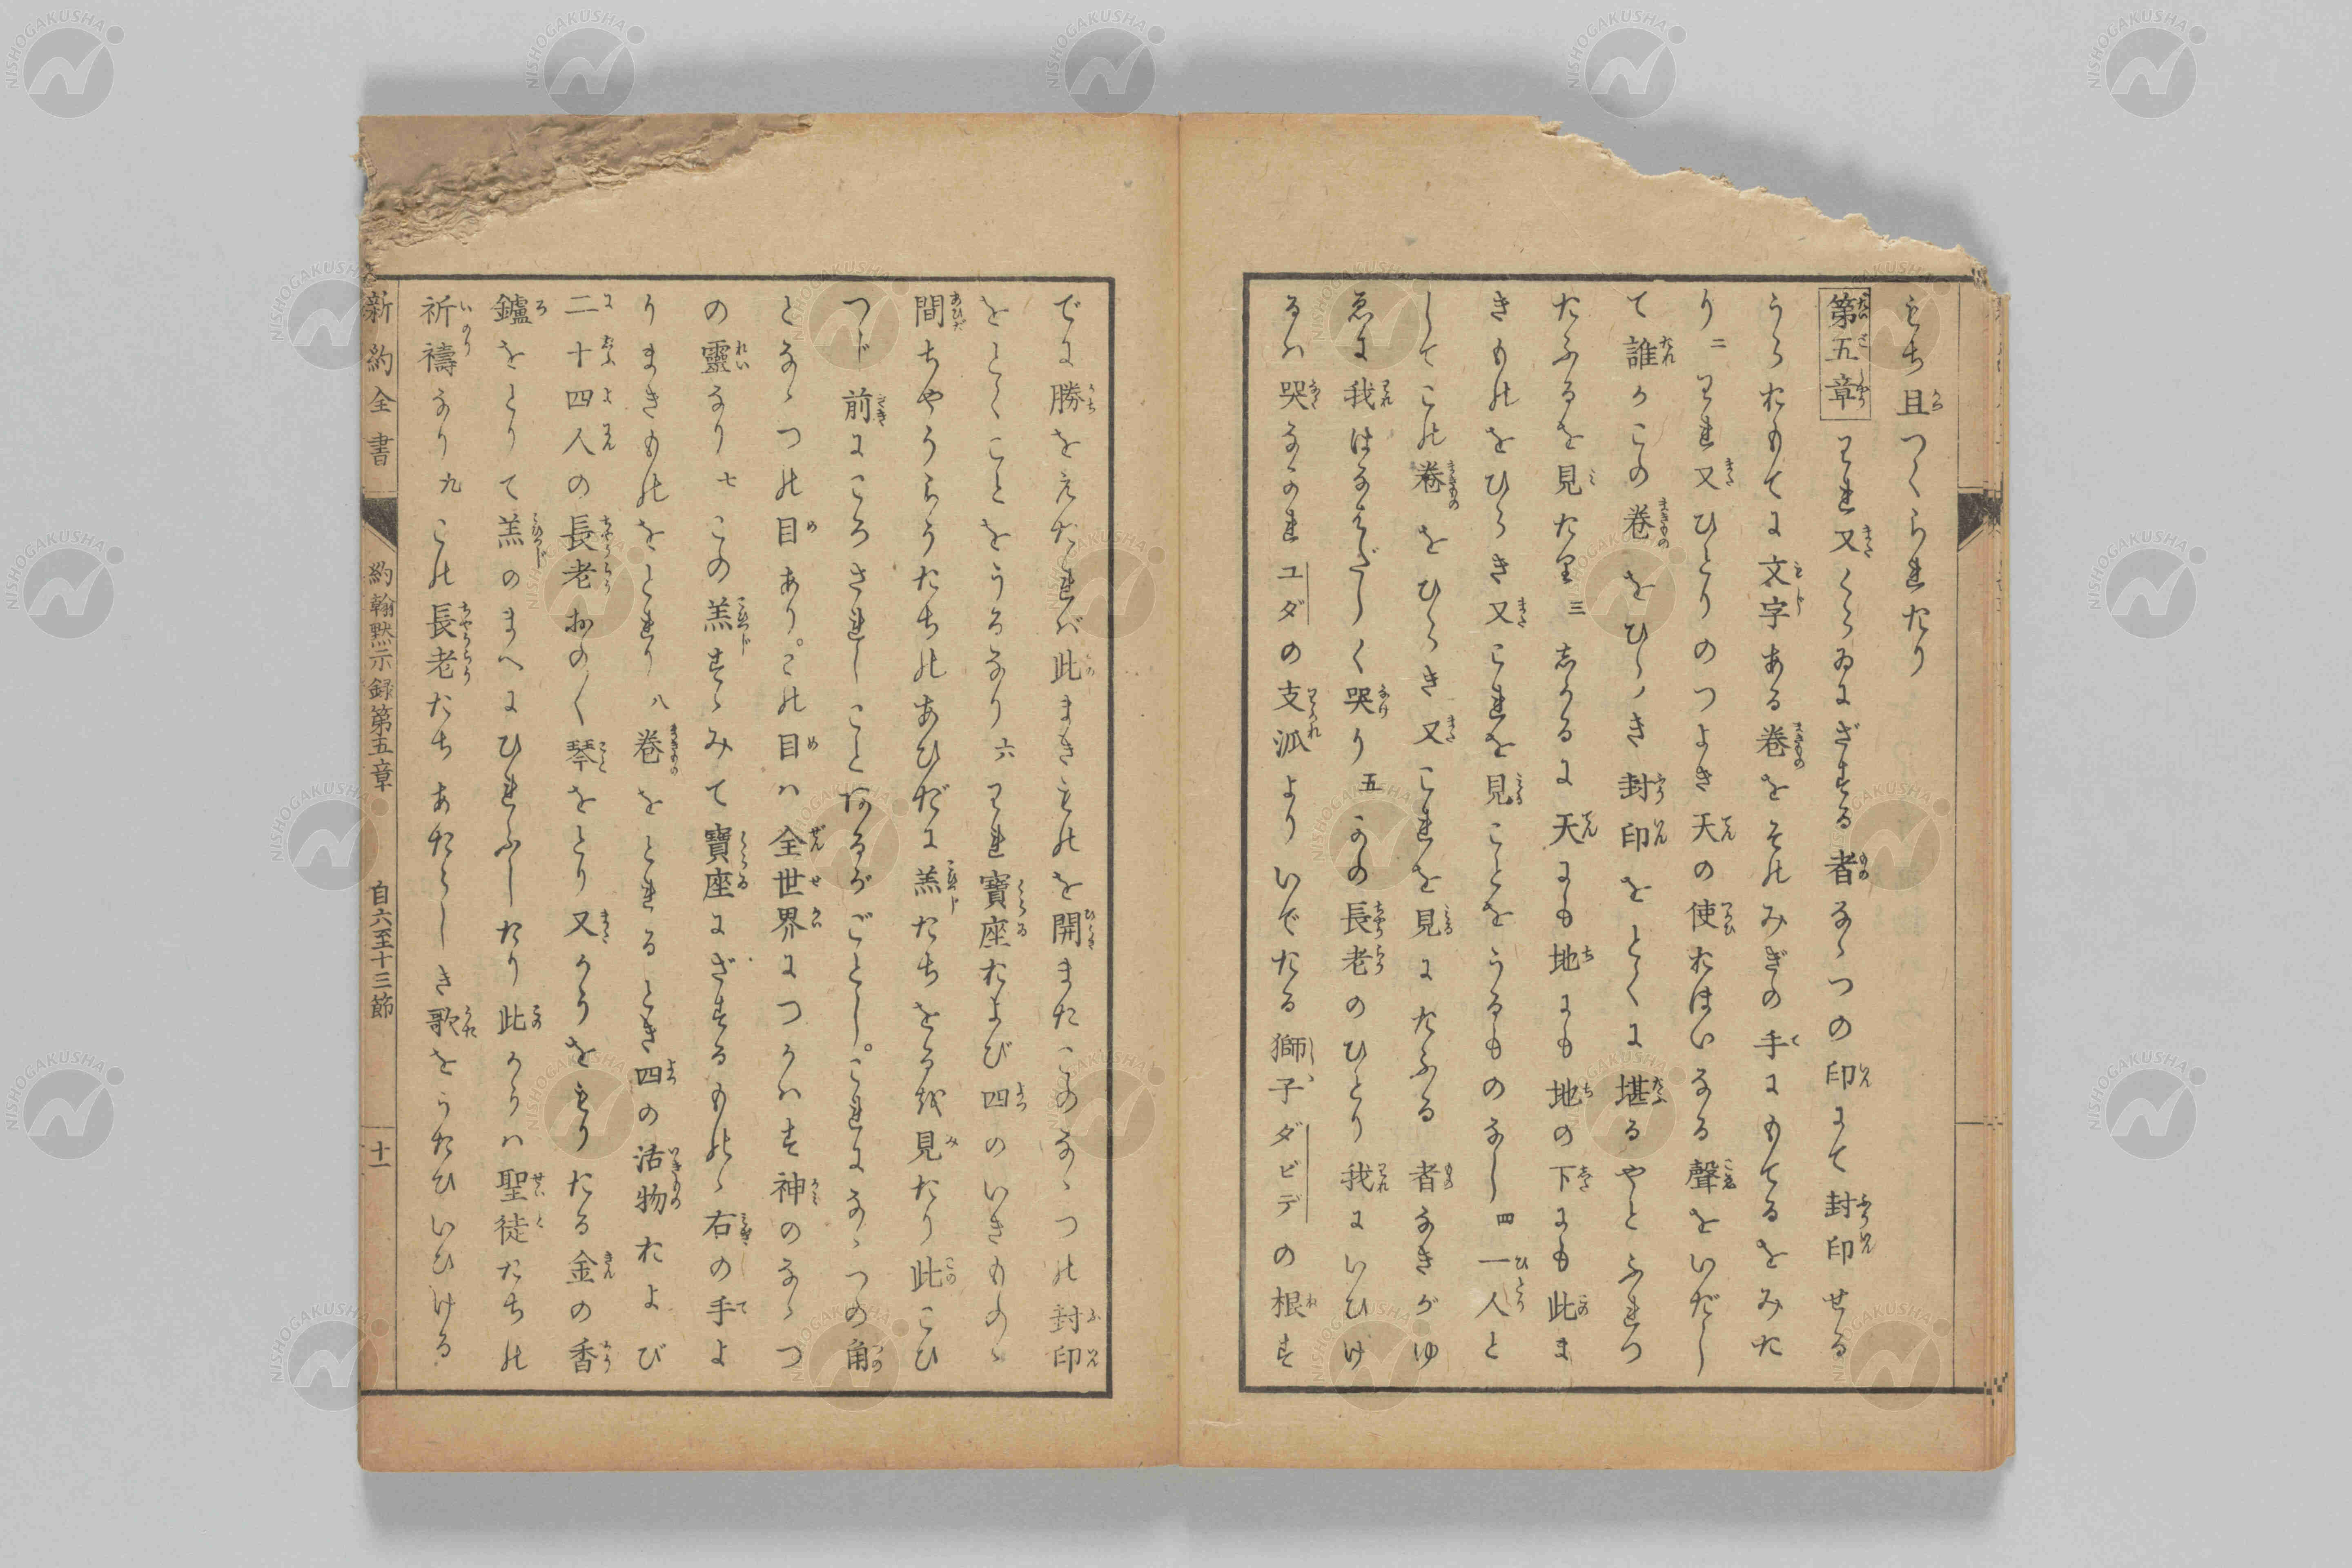 もち且つくられたり
第五章 われ又くらゐにざする者なゝつの印にて封印せる
うらおもてに文字ある巻をその みぎの手にもてるをみた
り二われ又ひとりのつよき天の使おほいなる聲をいだし
て誰かこの巻をひらき封印をとくに堪るやとふれつ
たふるを見たり三しかるに天にも地にも地の下にも此ま
きものをひらき又これを見ることをうるものなし四一人と
してこの巻をひらき又これを見にたふる者なきがゆ
ゑに我はなはだしく哭り五かの長老のひとり我にいひけ
るハ哭なかれユダの支派よりいでたる獅子ダビデの根す
でに勝をえたれバ此まきものを開またこのなゝつの封印
をとくことをうるなり六われ寶座および四のいきものゝ
間ちやうらうたちのあひだに羔たちをるを見たり此こひ
つじ前にころされしことあるがごとし。これになゝつの角
となゝつの目あり。この目ハ全世界につかハす神のなゝつ
の靈なり七この羔すゝみて寶座にざするものゝ右の手よ
りまきものをとれり八巻をとれるとき四の活物および
二十四人の長老おの〱琴をとり又かうをもりたる金の香
鑪をとりて羔のまへにひれふしたり此かうハ聖徒たちの
祈禱なり九この長老たちあたらしき歌をうたひいひける
新約全書 約翰黙示録第五章 自六至十三節 十一
NISHOGAKUSHA